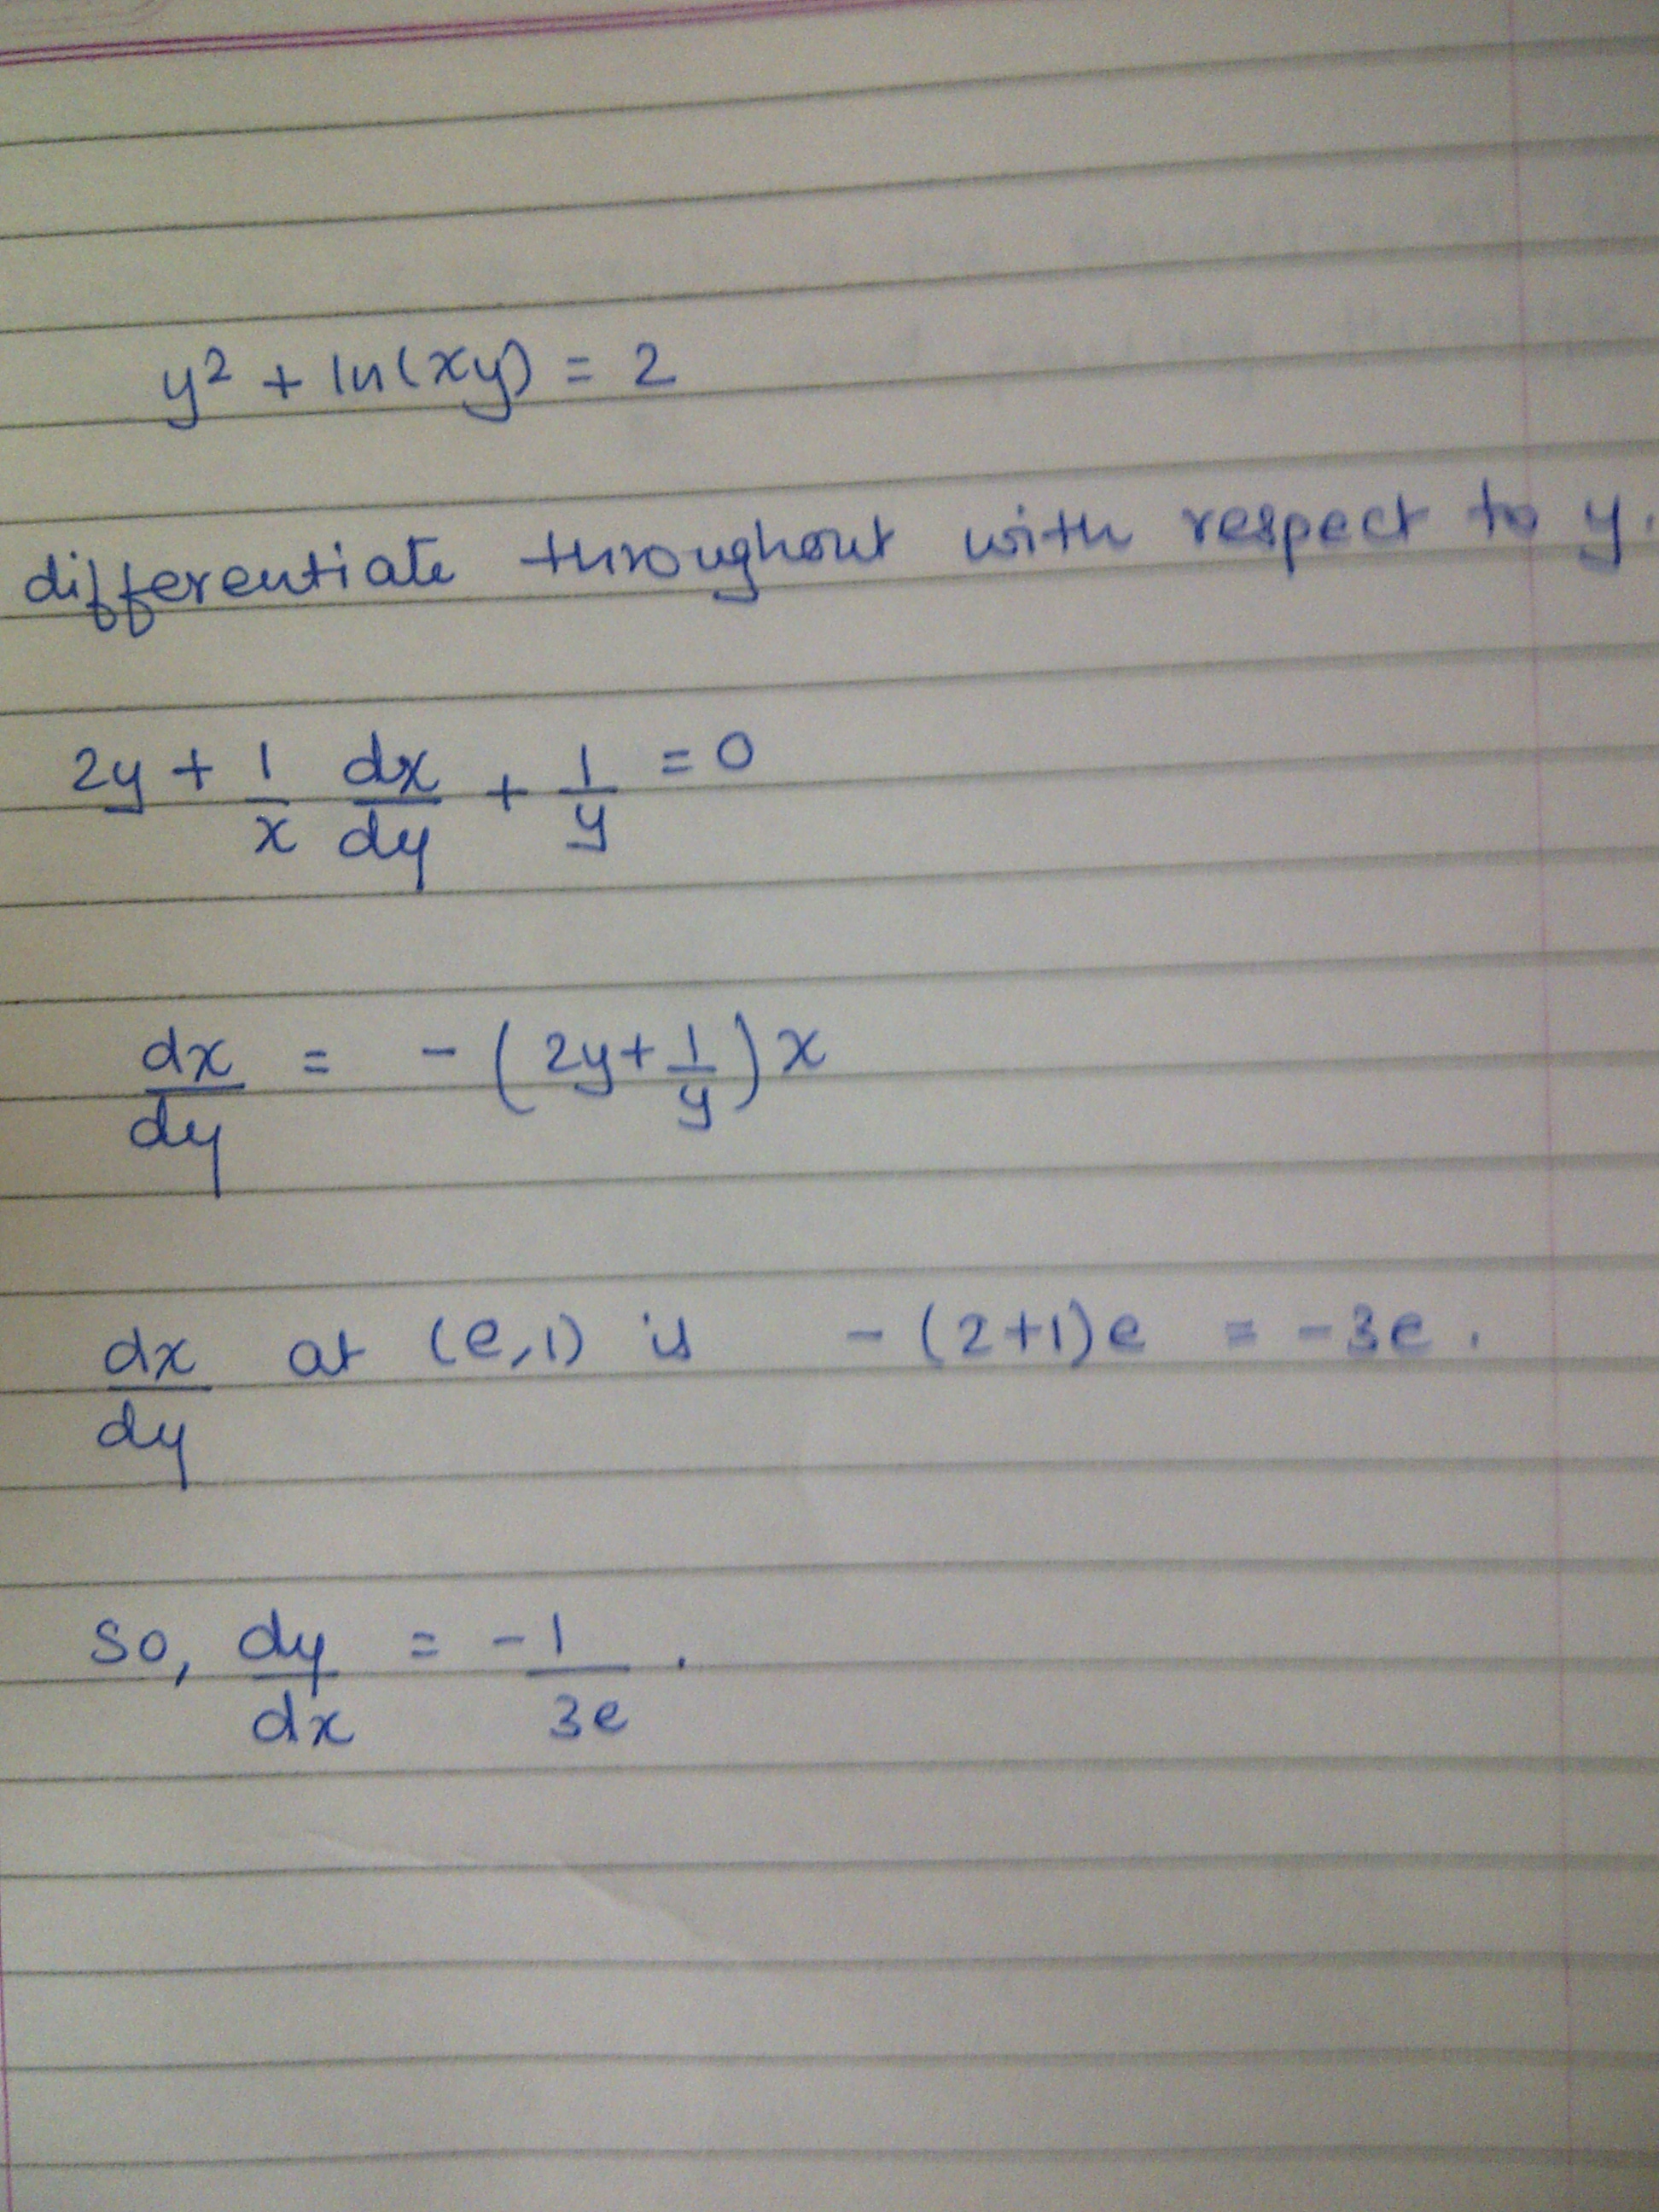 y² + ln(xy) = 2
differentiate throughout with respect to y.
2y + 1/x dx/dy + 1/y = 0
dx/dy = - (2y + 1/y) x
dx/dy at (e,1) is - (2+1)e = -3e.
so, dy/dx = -1/3e.